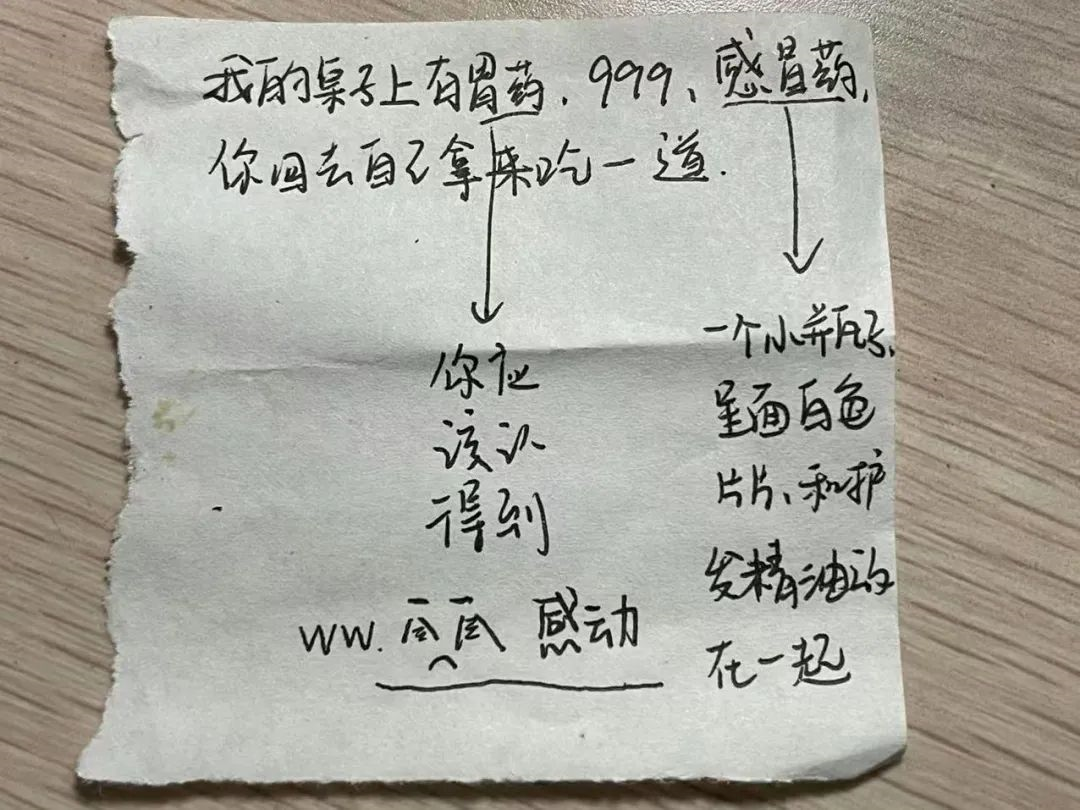 我的桌子上有胃药、999、感冒药，
你回去自己拿来吃一道.
你应
该认
得到
一个小瓶子、
里面白色
片片、和护
发精油放
在一起
ww. 感动